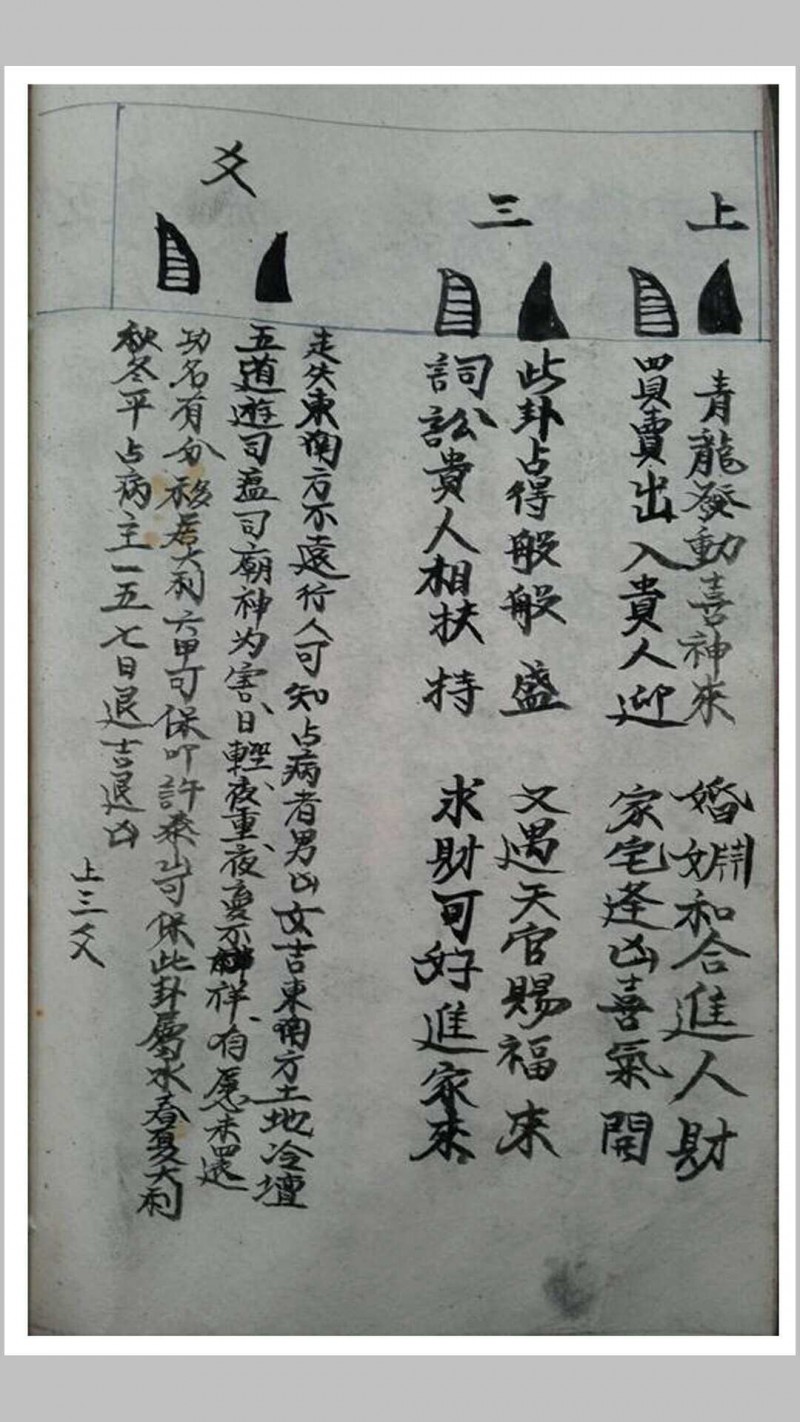 上三爻
青龍發動喜神來 婚姻和合進人財
買賣出入貴人迎 家宅逢凶喜氣開
此卦占得般般盛 又遇天官賜福來
詞訟貴人相扶持 求財可好進家來
走失東南方不遠行人可知占病者男凶女吉東南方土地冷壇
五道遊司瘟司廟神为害日輕夜重夜夢不祥有愿未還
功名有分移居大利六甲可保叩許泰山可保此卦屬水春夏大利
秋冬平占病主一五七日退吉退凶
上三爻